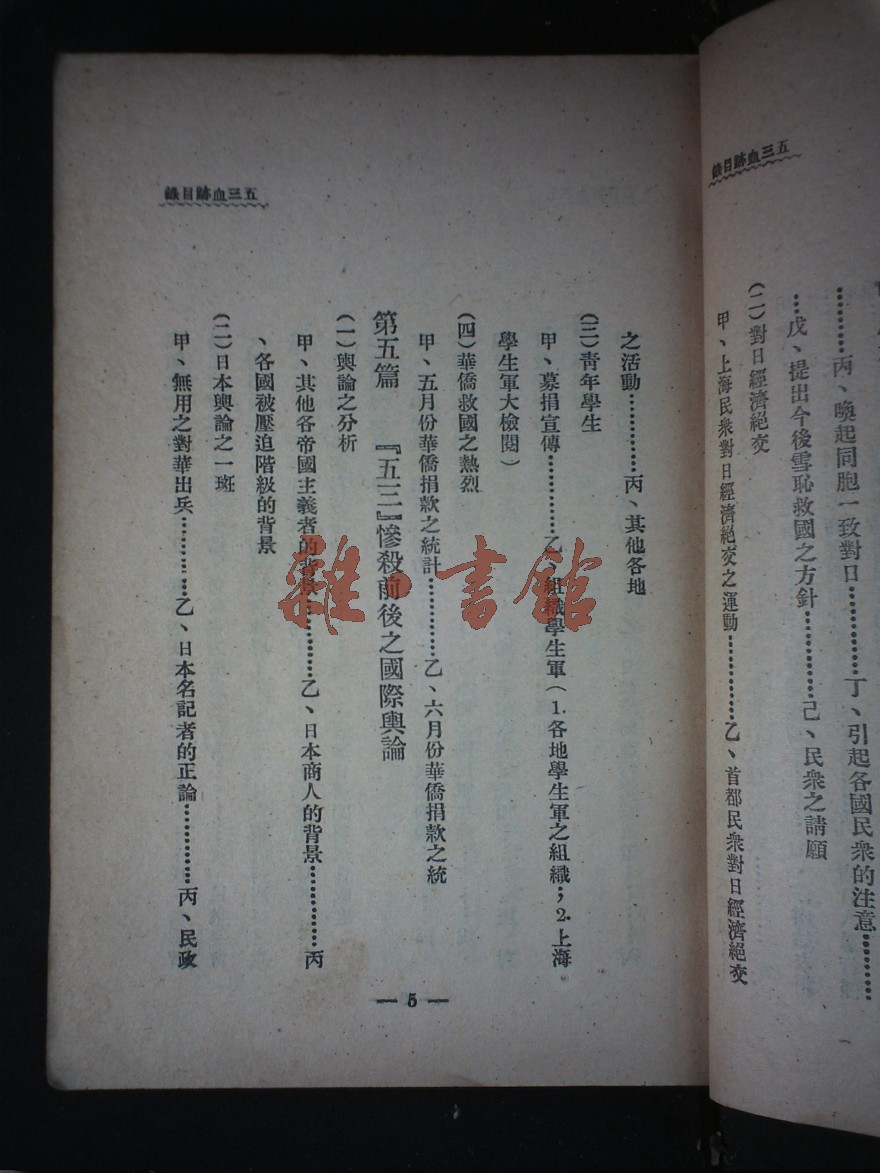 五三血跡目錄
丙、喚起同胞一致對日…………丁、引起各國民衆的注意…………
…戊、提出今後雪恥救國之方針…………己、民衆之請願
(二)對日經濟絕交
甲、上海民衆對日經濟絕交之運動…………乙、首都民衆對日經濟絕交
五三血跡目錄
之活動…………丙、其他各地
(三)靑年學生
甲、募捐宣傳…………乙、組織學生軍(1.各地學生軍之組織；2.上海
學生軍大檢閱)
(四)華僑救國之熱烈
甲、五月份華僑捐款之統計…………乙、六月份華僑捐款之統
第五篇 『五三』慘殺前後之國際輿論
(一)輿論之分析
甲、其他各帝國主義者的背景…………乙、日本商人的背景…………丙
、各國被壓迫階級的背景
(二)日本輿論之一斑
甲、無用之對華出兵…………乙、日本名記者的正論…………丙、民政
— 5 —
雜·書館